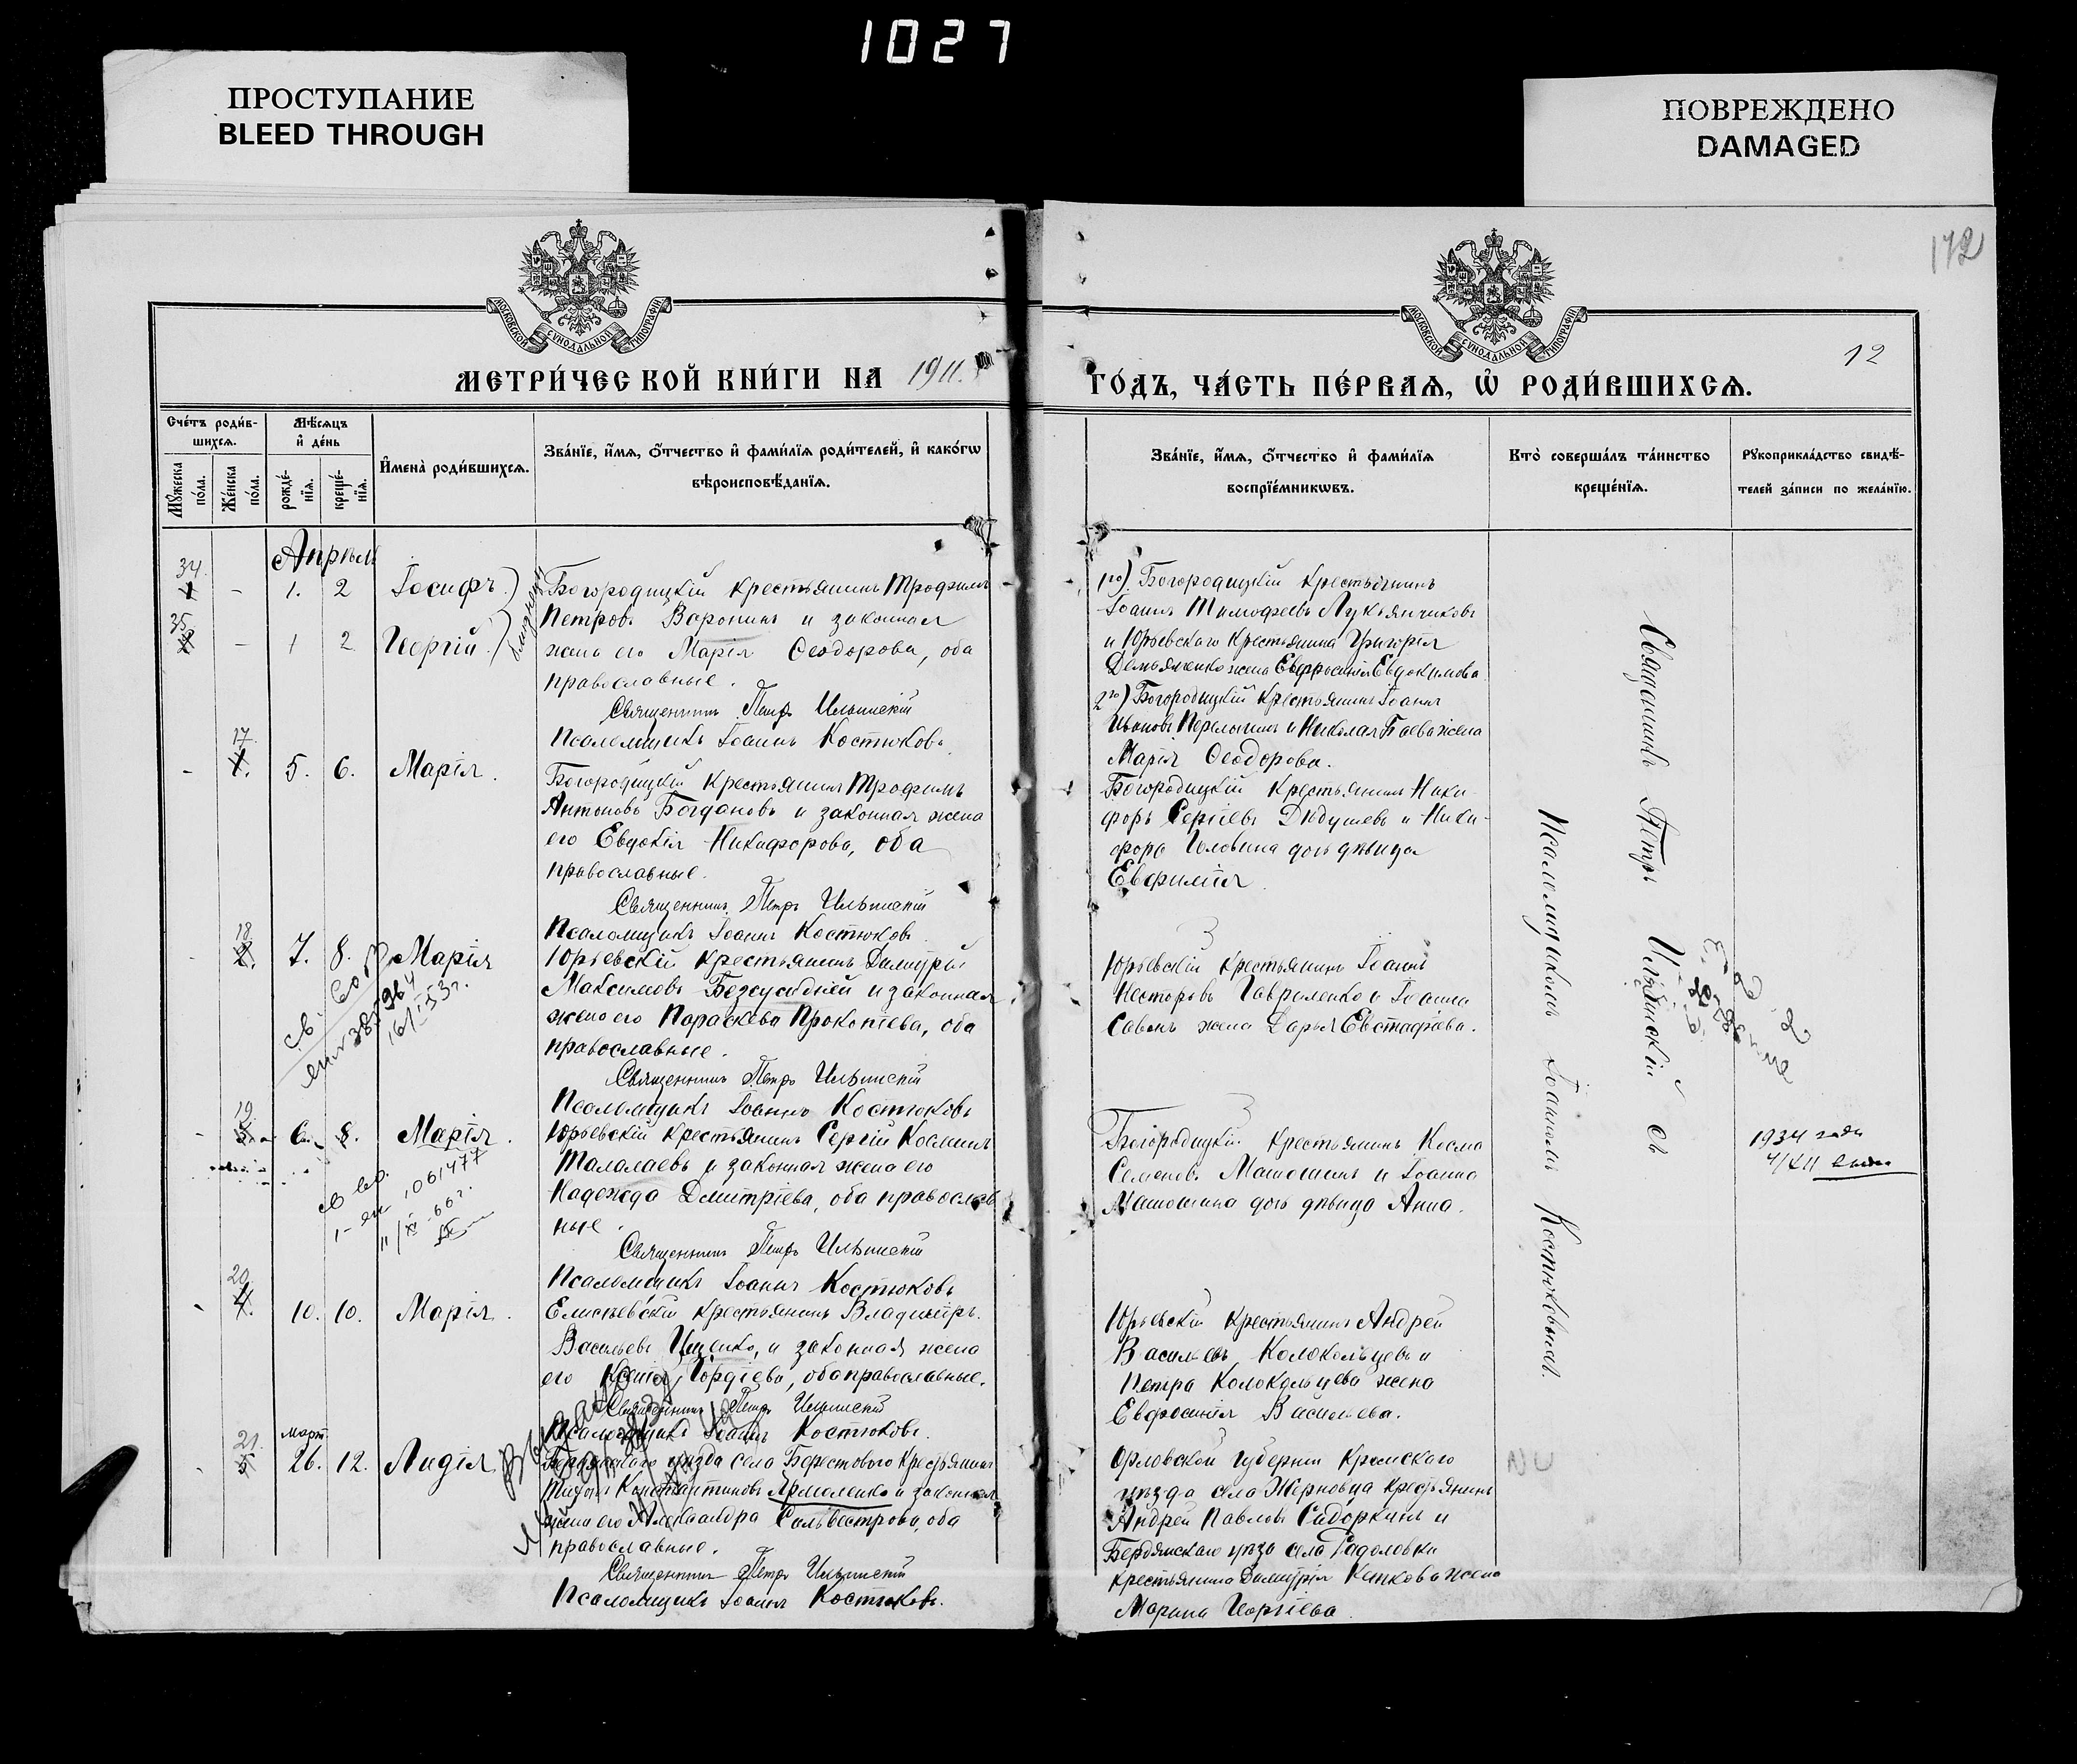 1027
ПРОСТУПАНИЕ
BLEED THROUGH
ПОВРЕЖДЕНО
DAMAGED
172
МОСКОВСКОЙ СѴНОДАЛЬНОЙ ТИПОГРАФІИ
МОСКОВСКОЙ СѴНОДАЛЬНОЙ ТИПОГРАФІИ
12
МЕТРИЧЕСКОЙ КНИГИ НА 1911.
ГОДЪ, ЧАСТЬ ПЕРВАѦ, Ѡ РОДИВШИХСѦ.
Счетъ родив-
шихсѧ.
Мужеска
пола.
Женска
пола.
Мѣсѧцъ
и день
рожде-
нїѧ.
креще-
нїѧ.
Имена родившихсѧ.
Званїе, имѧ, отчество и фамилїѧ родителей, и какогѡ
вѣроисповѣданїѧ.
Званїе, имѧ, отчество и фамилїѧ
воспрїемникѡвъ.
Кто совершалъ таинство
крещенїѧ.
Рукоприкладство свидѣ-
телей записи по желанїю.
Апрѣль
34
1 - 1. 2 Іосифъ.
35
2 - 1 2 Георгій
близнецы
Богородицкій крестьянинъ Трофимъ
Петровъ Воронинъ и законная
жена его Марія Ѳеодорова, оба
православные.
Священникъ Петръ Ильинскій
Псаломщикъ Іоаннъ Костюковъ.
1го) Богородицкій крестьянинъ
Іоаннъ Тимофеевъ Лукьянчиковъ
и Юрьевскаго крестьянина Григорія
Демьяненко жена Евфросинія Евдокимова
2го) Богородицкій крестьянинъ Іоаннъ
Ивановъ Перелыгинъ и Николая Баева жена
Марія Ѳеодорова.
17
- 1. 5. 6. Марія.
Богородицкій крестьянинъ Трофимъ
Антоновъ Богдановъ и законная жена
его Евдокія Никифорова, оба
православные.
Священникъ Петръ Ильинскій
Псаломщикъ Іоаннъ Костюковъ.
Богородицкій крестьянинъ Ники-
форъ Сергіевъ Дидушевъ и Ники-
фора Головина дочь дѣвица
Евфимія.
18
- 2. 7. 8. Марія
Юрьевскій крестьянинъ Димитрій
Максимовъ Безсусідній и законная
жена его Параскева Прокопіева, оба
православные.
Священникъ Петръ Ильинскій
Псаломщикъ Іоаннъ Костюковъ
Юрьевскій крестьянинъ Іоаннъ
Несторовъ Гавриленко и Іоанна
Савонъ жена Дарья Евстафіева.
19.
- 3 6. 8. Марія.
1061477
Юрьевскій крестьянинъ Сергій Косминъ
Талалаевъ и законная жена его
Надежда Дмитріева, оба православ-
ные.
Священникъ Петръ Ильинскій
Псаломщикъ Іоаннъ Костюковъ
Богородицкій крестьянинъ Косма
Семеновъ Машошинъ и Іоанна
Машошина дочь дѣвица Анна.
1934 года
4/XII
20
- 4. 10. 10. Марія.
Елисѣевскій крестьянинъ Владиміръ
Васильевъ Ищенко, и законная жена
его Ксенія Гордіева, оба православные.
Священникъ Петръ Ильинскій
Псаломщикъ Іоаннъ Костюковъ.
Юрьевскій крестьянинъ Андрей
Васильевъ Колокольцевъ и
Петра Колокольцева жена
Евфросинія Васильева.
21 Март.
- 5 26. 12. Лидія
Бердянскаго уѣзда села Берестового крестьянинъ
Константиновъ Ярмоленко и законная
жена его Александра Сильвестрова, оба
православные.
Священникъ Петръ Ильинскій
Псаломщикъ Іоаннъ Костюковъ.
Орловской губерніи Кромскаго
уѣзда села Жерновца крестьянинъ
Андрей Павловъ Сидоркинъ и
Бердянскаго уѣзда села
крестьянина Димитрія жена
Марина Георгіева
Священникъ Петръ Ильинскій съ
Псаломщикомъ Іоанномъ Костюковымъ.